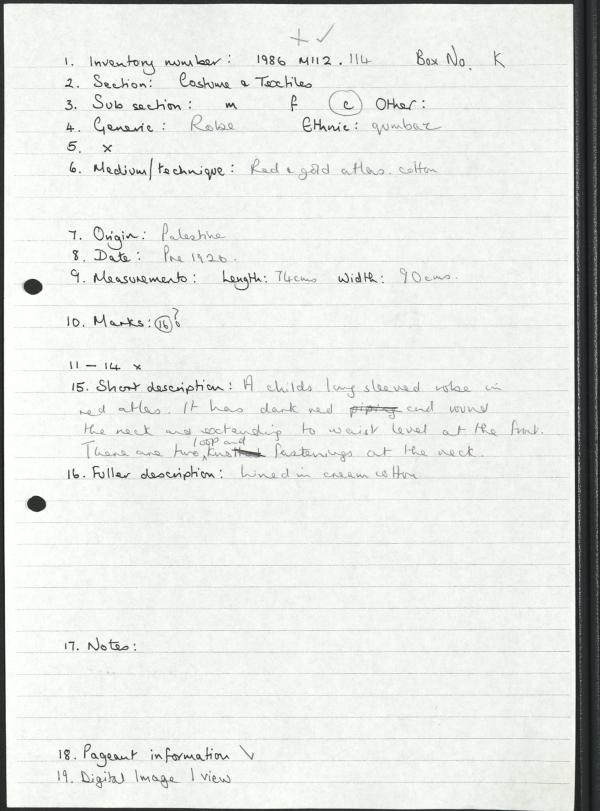 + ✓
1. Inventory number: 1986 M112.114 Box No. K
2. Section: Costume & Textiles
3. Sub section: m f (c) Other:
4. Generic: Robe Ethnic: qumbaz
5. x
6. Medium/technique: Red & gold atlas. cotton
7. Origin: Palestine
8. Date: Pre 1920.
9. Measurements: Length: 74cms Width: 90cms.
10. Marks: (16)?
11 – 14 x
15. Short description: A childs long sleeved robe in
red atlas. It has dark red piping cord round
the neck and extending to waist level at the front.
There are two, loop and knot fastenings at the neck.
16. Fuller description: Lined in cream cotton
17. Notes:
18. Pageant information \
19. Digital Image 1 view